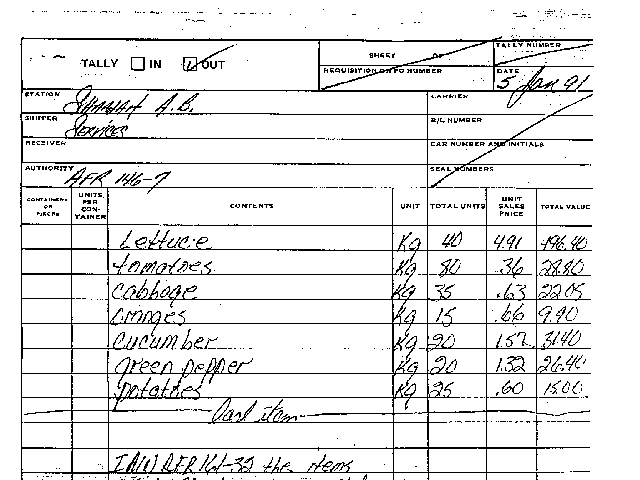 TALLY IN OUT
SHEET OF
TALLY NUMBER
REQUISITION OR PO NUMBER
DATE 5 Jan 91
STATION A.B.
CARRIER
SHIPPER Services
B/L NUMBER
RECEIVER
CAR NUMBER AND INITIALS
AUTHORITY AFR 146-7
SEAL NUMBERS
CONTAINERS OR PIECES UNITS PER CON- TAINER CONTENTS UNIT TOTAL UNITS UNIT SALES PRICE TOTAL VALUE
Lettuce Kg 40 4.91 196.40
tomatoes Kg 80 .36 28.80
Cabbage Kg 35 .63 22.05
Oranges Kg 15 .66 9.90
Cucumber Kg 20 1.57 31.40
green pepper Kg 20 1.32 26.40
potatoes Kg 25 .60 15.00
item
the items